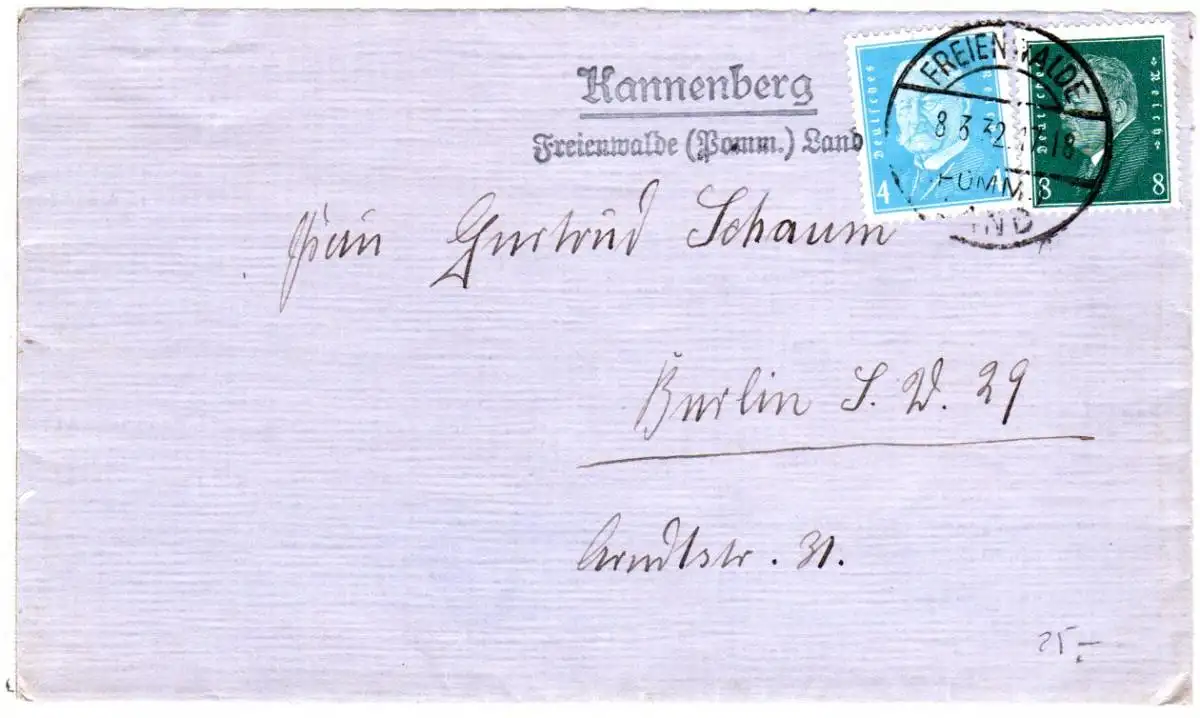 Kannenberg
Freienwalde (Pomm.) Land
Deutsches Reich
4 4
Deutsches Reich
8 8
FREIENWALDE
8.3.32.17-18
POMM
LAND
Frau Gertrud Schaum
Berlin S. W. 29
Arndtstr. 31.
25.-